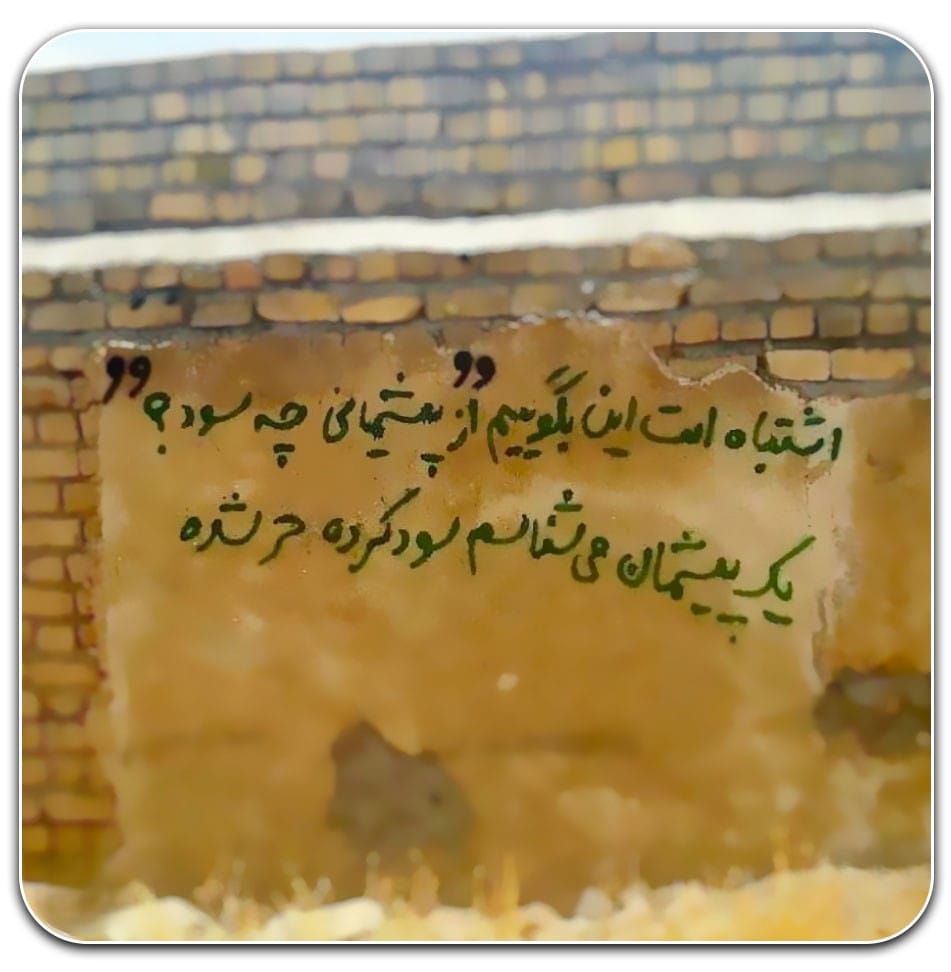 اشتباه است این بگوییم "از پیشیمانی چه سود؟"
یک پیشیمان می‌شناسم سود کرده حر شده